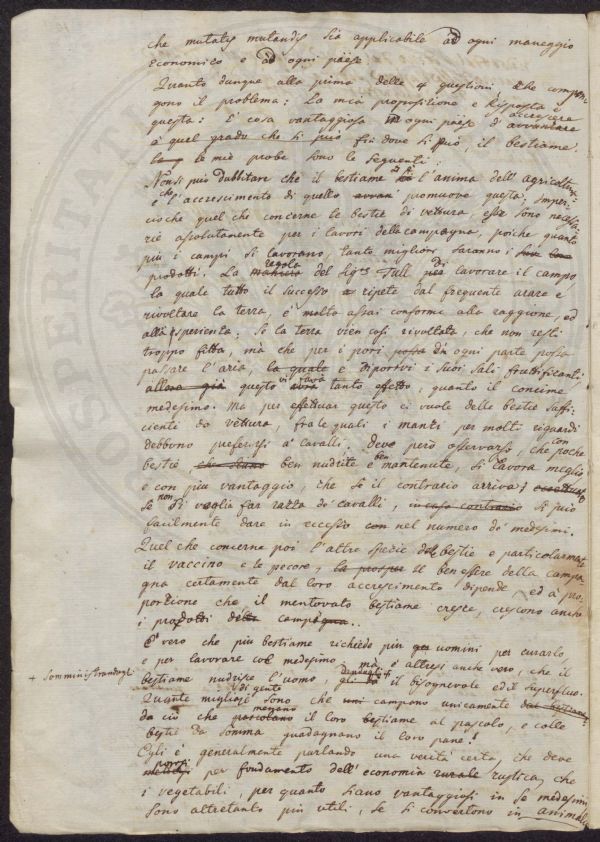 che mutatis mutandis sia applicabile ad ogni maneggio
economico e ad ogni paese.
Quanto dunque alla prima delle 4 questioni, che compon-
gono il problema: La mia proposizione e risposta è
questa: È cosa vantaggiosa in ogni paese d'accrescere
à quel grado che si può fin dove si può, il bestiame.
le mie probe sono le seguenti:
Non si può dubbitare che il bestiame sia l'anima dell'agricoltura
e che l'accrescimento di quello promuova questa; imper-
cioche quel che concerne le bestie di vettura, esse sono necessa-
rie assolutamente per i lavori della campagna, poiche quanto
più i campi si lavorano, tanto migliori saranno i
prodotti. La maniera regola del Sigr. Tull di lavorare il campo,
la quale tutto il successo ripete dal frequente arare e
rivoltare la terra, è molto assai conforme alla raggione, ed
alla esperienza; Se la terra vien così rivoltata, che non resti
troppo fitta, mà che per i pori possa di ogni parte possa
passare l'aria, la quale e diporvi i suoi sali fruttificanti,
allora già questo avrà tanto effetto, quanto il concime
medesimo. Ma per effettuar questo ci vuole delle bestie suffi-
cienti da vettura, fra le quali i manzi per molti riguardi
debbono preferirsi a' cavalli; deve però osservarsi, che con poche
bestie, che siano ben nudrite e ben mantenute, si lavora meglio
e con più vantaggio, che se il contrario arriva;
se non si voglia far razza di cavalli, in caso contrario si può
facilmente dare in eccesso con nel numero de' medesimi.
Quel che concerne poi l'altre spezie delle bestie e particolarmente
il vaccino e le pecore, la prosper il ben essere della campa-
gna certamente dal loro accrescimento dipende, ed à pro-
porzione che il mentovato bestiame cresce, crescono anche
i prodotti della campagna.
È vero che più bestiame richiede più uomini per curarlo
e per lavorare col medesimo, ma è altresì anche vero, che il
+ somministrandogli
bestiame nudrisce l'uomo, dandogli + il bisognevole ed il superfluo.
Quante migliaje di gente sono che campano unicamente dal bestiame
da ciò che pascolano menano il loro bestiame al pascolo, e colle
bestie da somma guadagnano il loro pane!
Egli è generalmente parlando una verità certa, che deve
mettersi porsi per fondamento dell'economia rurale rustica, che
i vegetabili, per quanto siano vantaggiosi in se medesimi
sono altretanto più utili, se si convertono in animali